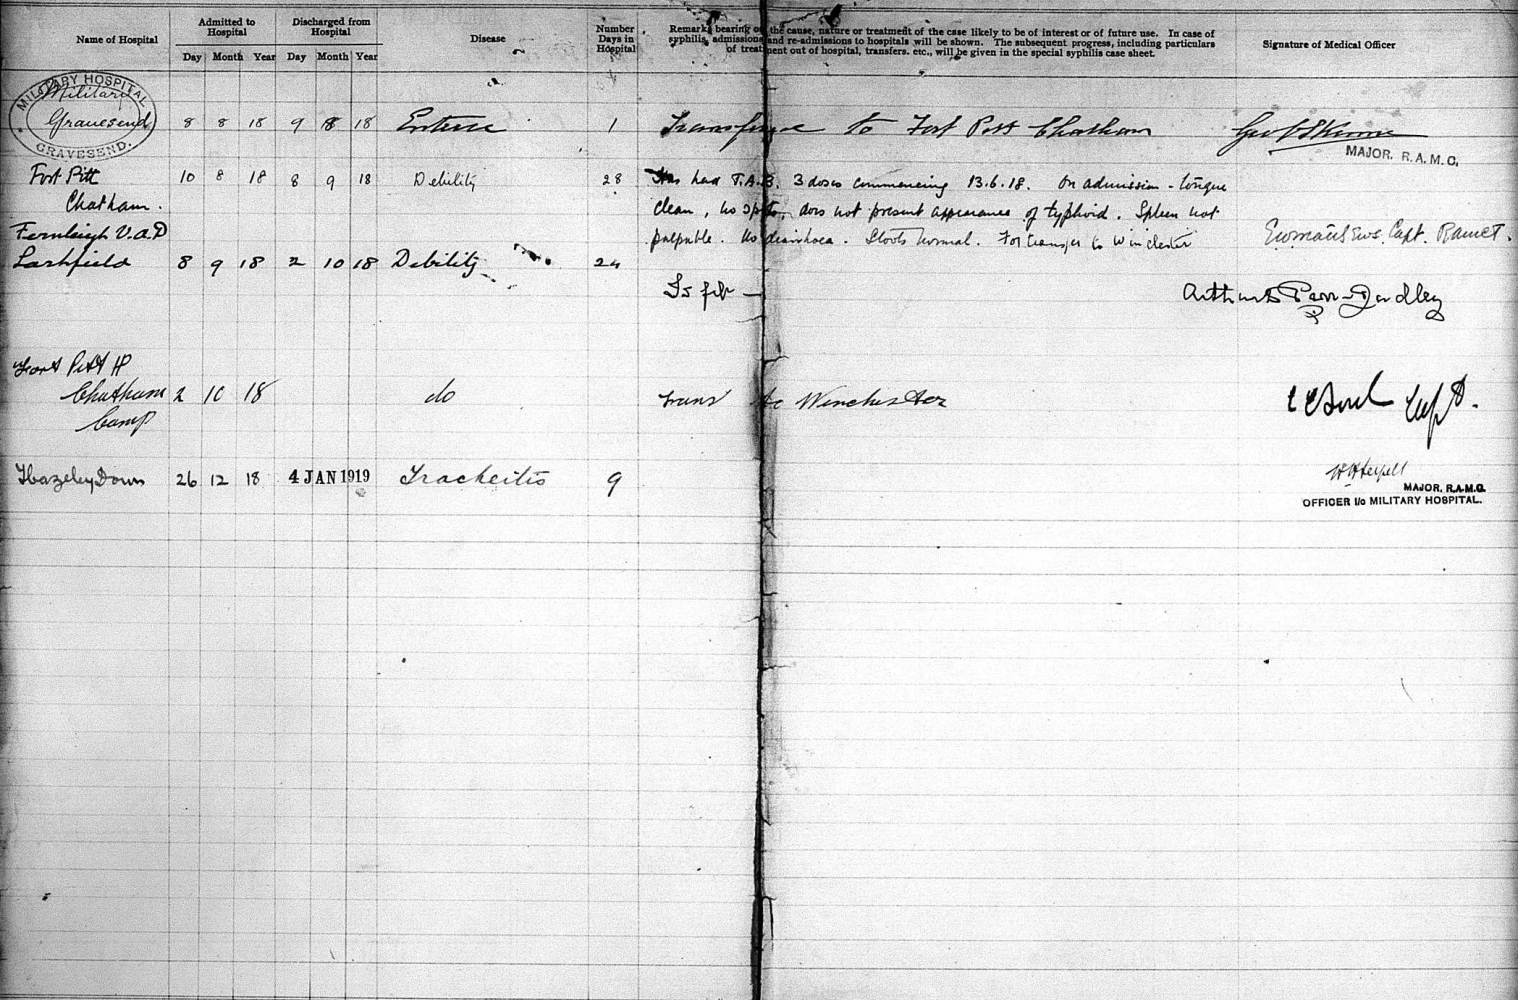 Name of Hospital
Admitted to Hospital
Discharged from Hospital
Disease
Number Days in Hospital
Remarks bearing on the cause, nature or treatment of the case likely to be of interest or of future use. In case of
syphilis, admissions and re-admissions to hospitals will be shown. The subsequent progress, including particulars
of treatment out of hospital, transfers. etc., will be given in the special syphilis case sheet.
Signature of Medical Officer
Day Month Year Day Month Year
MILITARY HOSPITAL GRAVESEND.
Military
Gravesend 8 8 18 9 8 18 Enteric 1 Transfer to Fort Pitt Chatham
MAJOR. R.A.M.C.
Fort Pitt 10 8 18 8 9 18 Debility 28 Has had T.A.B. 3 doses commencing 13.6.18. On admission - tongue
Chatham. clean, no spots, does not present appearance of typhoid. Spleen not
Fernleigh V.A.D palpable. No diarrhoea. Stools normal. For transfer to Winchester Capt. RAMCT.
Larkfield 8 9 18 2 10 18 Debility 24
Is fit — Arthur
Fort Pitt H
Chatham 2 10 18 do trans to Winchester Capt.
Camp
Hazeley Down 26 12 18 4 JAN 1919 Tracheitis 9
MAJOR. R.A.M.C.
OFFICER I/c MILITARY HOSPITAL.